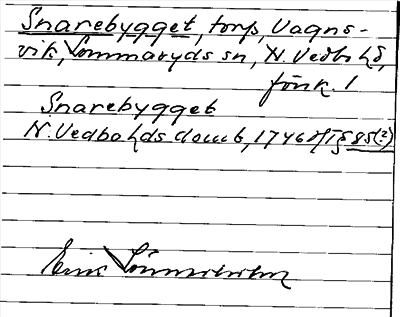 Snarebygget, torp, Vagns-
vik, Lommaryds sn, N. Vedbo hd,
Jönk. l
Snarebygget
N. Vedbo hds domb, 1746 HT § 85(?)
Erik Lönnerholm